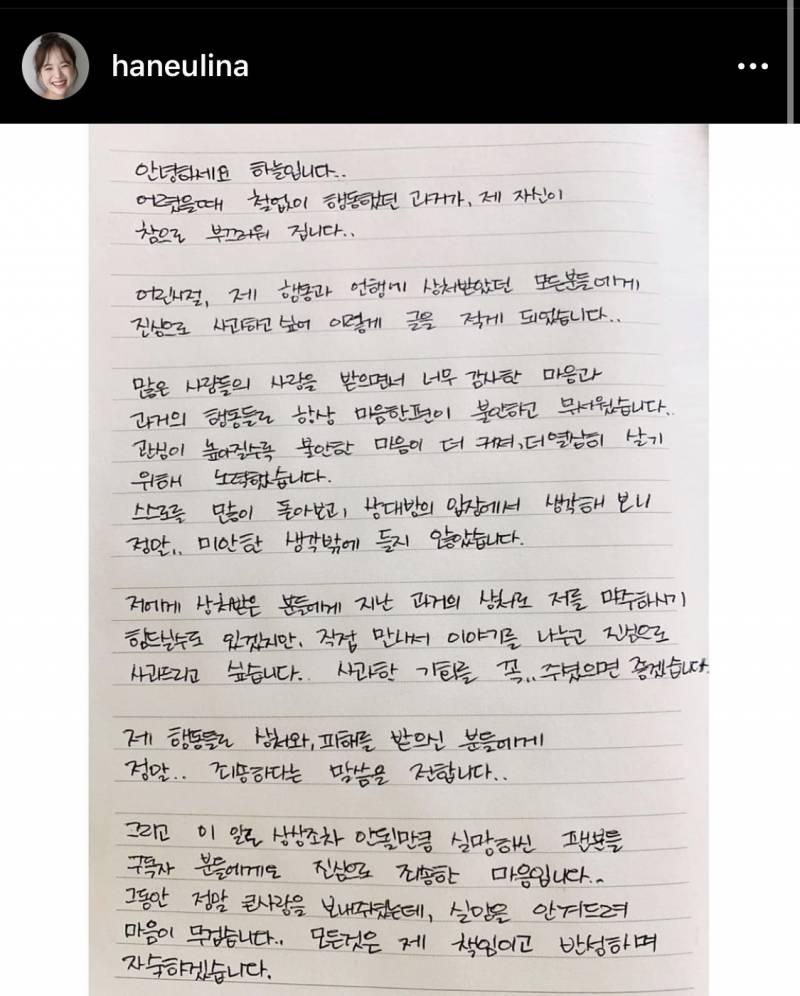 haneulina
안녕하세요 하늘입니다..
어렸을때 철없이 행동했던 과거가, 제 자신이
참으로 부끄러워 집니다..
어린시절, 제 행동과 언행에 상처받았던 모든분들에게
진심으로 사과하고 싶어 이렇게 글을 적게 되었습니다..
많은 사람들의 사랑을 받으면서 너무 감사한 마음과
과거의 행동들로 항상 마음한편이 불안하고 무서웠습니다..
관심이 높아질수록 불안한 마음이 더 커져, 더 열심히 살기
위해 노력했습니다.
스스로를 많이 돌아보고, 상대방의 입장에서 생각해 보니
정말.. 미안한 생각밖에 들지 않았습니다.
저에게 상처받은 분들에게 지난 과거의 상처로 저를 마주하시기
힘드실수도 있겠지만, 직접 만나서 이야기를 나누고 진심으로
사과드리고 싶습니다.. 사과할 기회를 꼭.. 주셨으면 좋겠습니다.
제 행동들로 상처와, 피해를 받으신 분들에게
정말.. 죄송하다는 말씀을 전합니다..
그리고 이 일로 상상조차 안될만큼 실망하신 팬분들
구독자 분들에게도 진심으로 죄송한 마음입니다..
그동안 정말 큰사랑을 보내주셨는데, 실망을 안겨드려
마음이 무겁습니다.. 모든것은 제 책임이고 반성하며
자숙하겠습니다.